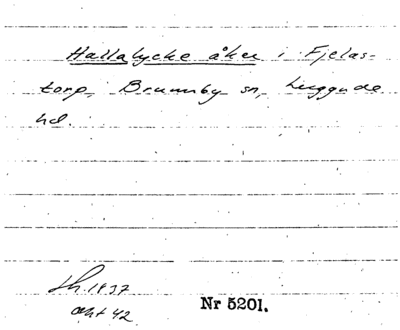 Hallalycke åker i Fjelas-
torp, Brunnby sn, Luggude
hd.
Lh. 1837
akt 42
Nr 5201.